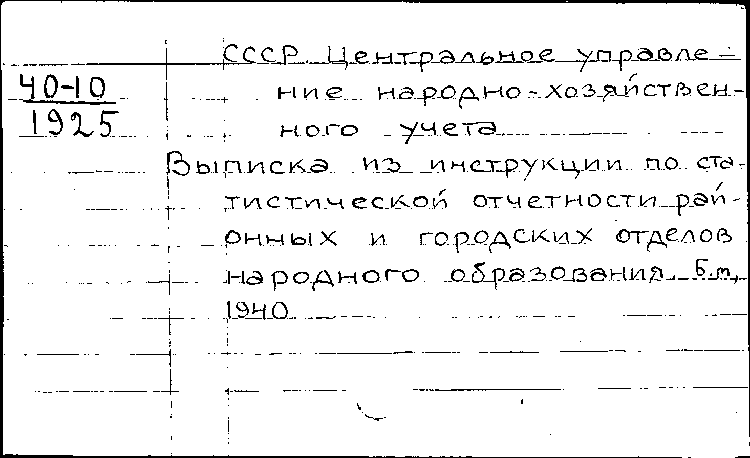 СССР Центральное управле-
40-10
ние народно-хозяйствен-
1925
ного учета
Выписка из инструкции по ста-
тистической отчетности рай-
онных и городских отделов
народного образования. Б.м.,
1940